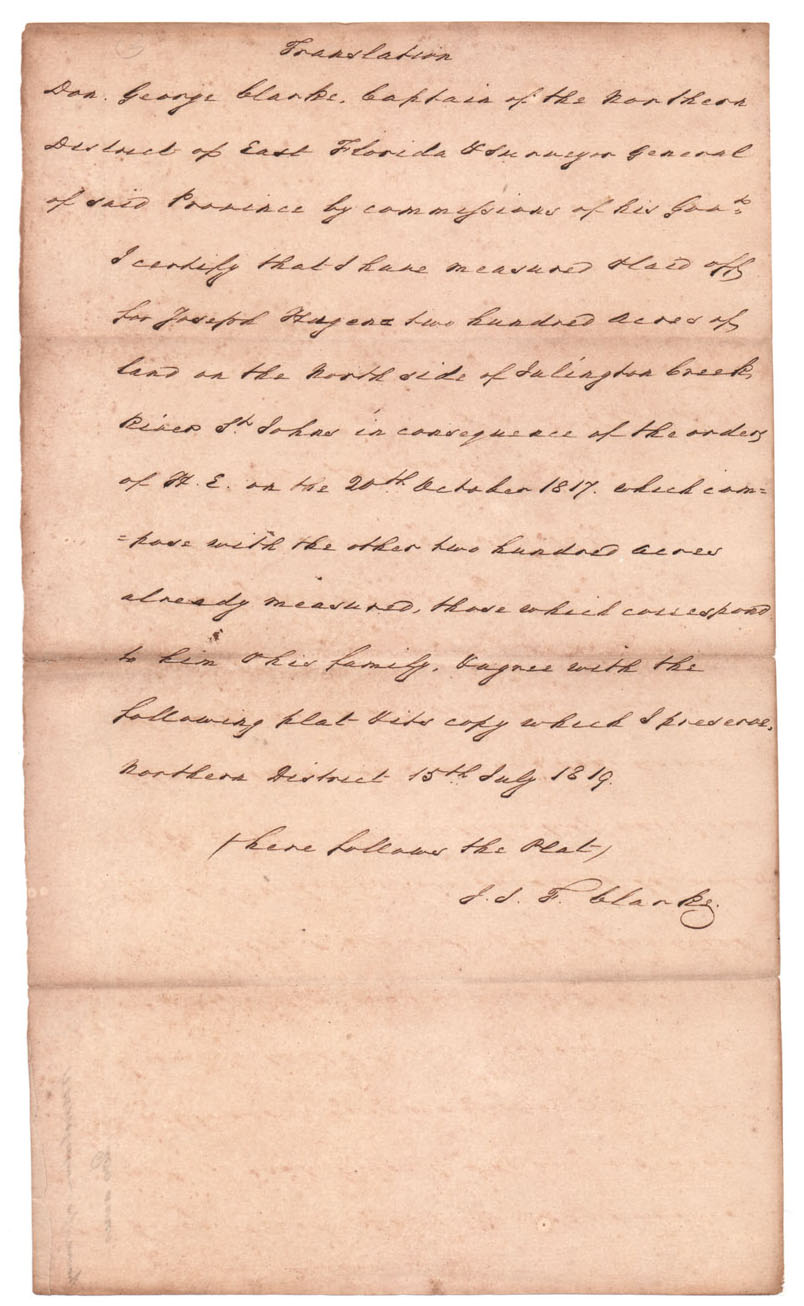 Translation
Don. George Clarke, Captain of the Northern
District of East Florida & Surveyor General
of said Province by commissions of his Govt.
I certify that I have measured & laid off
for Joseph Hagens two hundred acres of
land on the North side of Julington Creek,
River St. Johns in consequence of the orders
of H. E. on the 20th October 1817. which com=
=pose with the other two hundred acres
already measured, those which correspond
to him & his family, & agree with the
following plat & its copy which I preserve,
Northern District 15th July 1819.
(here follows the Plat)
J. J. F. Clarke.